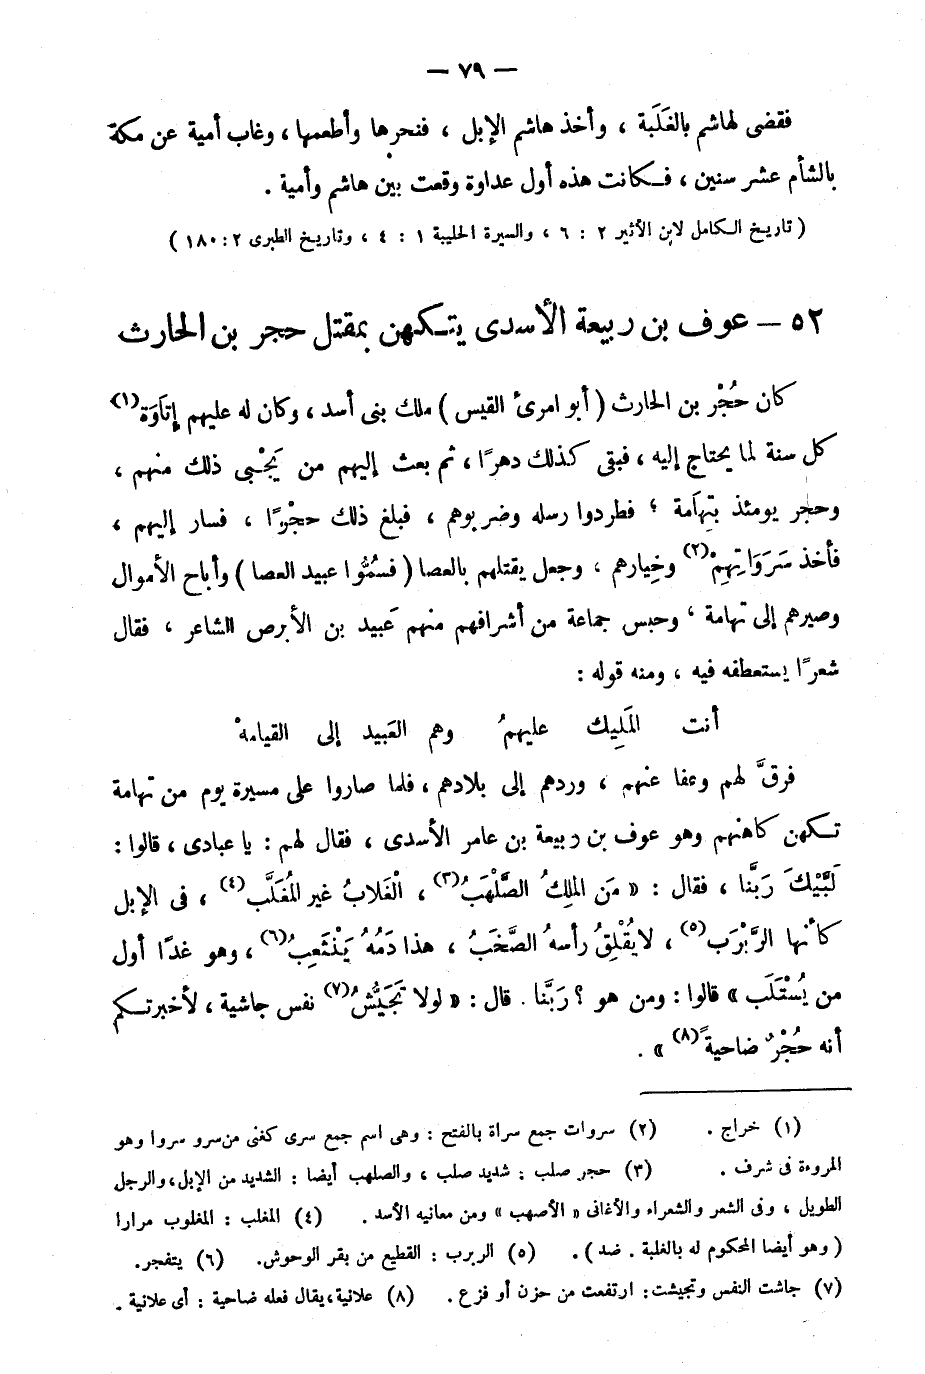 — ٧٩ —
فقضى لهاشم بالغَلَبة ، وأخذ هاشم الإبل ، فنحرها وأطعمها ، وغاب أمية عن مكة
بالشأم عشر سنين ، فكانت هذه أول عداوة وقعت بين هاشم وأمية .
( تاريخ الكامل لابن الأثير ٢ : ٦ ، والسيرة الحلبية ١ : ٤ ، وتاريخ الطبرى ٢ : ١٨٠ )
٥٢ — عوف بن ربيعة الأسدى يتكهن بمقتل حجر بن الحارث
كان حُجْر بن الحارث ( أبو امرئ القيس ) ملك بنى أسد ، وكان له عليهم إتَاوَة(١)
كل سنة لما يحتاج إليه ، فبقى كذلك دهرًا ، ثم بعث إليهم من يَجْبى ذلك منهم ،
وحجر يومئذ بتِهاَمة ؛ فطردوا رسله وضربوهم ، فبلغ ذلك حجْرًا ، فسار إليهم ،
فأخذ سَرَوَاتِهِمْ(٢) وخِيارهم ، وجعل يقتلهم بالعصا ( فسُمُّوا عبيد العصا ) وأباح الأموال
وصيرهم إلى تهامة ، وحبس جماعة من أشرافهم منهم عَبيد بن الأبرص الشاعر ، فقال
شعرًا يستعطفه فيه ، ومنه قوله :
أنت المَلِيك عليهمُ وهم العَبيد إلى القيامهْ
فرقَّ لهم وعفا عنهم ، وردهم إلى بلادهم ، فلما صاروا على مسيرة يوم من تهامة
تكهن كاهنهم وهو عوف بن ربيعة بن عامر الأسدى ، فقال لهم : يا عبادى ، قالوا :
لَبَّيْكَ رَبَّنا ، فقال : « مَن الملِكُ الصَّلْهَبُ(٣) ، الْغَلابُ غير المُغَلَّب(٤) ، فى الإبل
كأنها الرَّبْرَب(٥) ، لا يُقْلِقُ رأسهُ الصَّخَبُ ، هذا دَمُهُ يَنْثَعِبُ(٦) ، وهو غدًا أول
من يُسْتَلَب » قالوا : ومن هو ؟ رَبَّنا . قال : « لولا تَجَيُّشُ(٧) نفس جاشية ، لأخبرتكم
أنه حُجْرٌ ضاحيةً(٨) » .
(١) خراج . (٢) سروات جمع سراة بالفتح : وهى اسم جمع سرى كغنى من سرو سروا وهو
المروءة فى شرف . (٣) حجر صلب : شديد صلب ، والصلهب أيضا : الشديد من الإبل ، والرجل
الطويل ، وفى الشعر والشعراء والأغانى « الأصهب » ومن معانيه الأسد . (٤) المغلب : المغلوب مرارا
( وهو أيضا المحكوم له بالغلبة . ضد ) . (٥) الربرب : القطيع من بقر الوحوش. (٦) يتفجر.
(٧) جاشت النفس وتجيشت : ارتفعت من حزن أو فزع . (٨) علانية ، يقال فعله ضاحية : أى علانية .